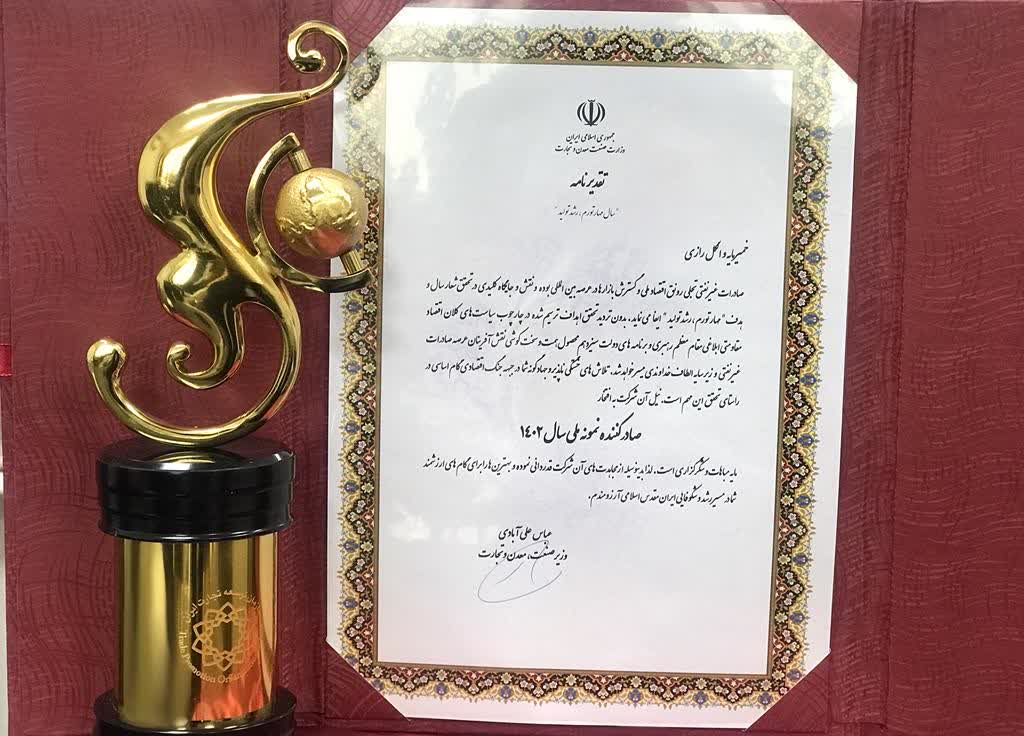 جمهوری اسلامی ایران
وزارت صنعت معدن و تجارت
تقدیرنامه
"سال مهار تورم، رشد تولید"
خمیرمایه و الکل رازی
صادرات غیرنفتی تجلی رونق اقتصاد ملی و گسترش بازارها در عرصه بین المللی بوده و نقش و جایگاه کلیدی در تحقق شعار سال و
هدف "مهار تورم، رشد تولید" ایفا می نماید، بدون تردید تحقق اهداف ترسیم شده در چارچوب سیاست های کلان اقتصاد
مقاومتی ابلاغی مقام معظم رهبری و برنامه های دولت سیزدهم محصول همت و سخت کوشی نقش آفرینان عرصه صادرات
غیرنفتی و زیر سایه الطاف خداوندی میسر خواهد شد. تلاش های خستگی ناپذیر و جهادگونه شما در جبهه جنگ اقتصادی گام اساسی در
راستای تحقق این مهم است. نیل آن شرکت به افتخار
صادرکننده نمونه ملی سال ۱٤۰۲
مایه مباهات و شکرگزاری است. لذا بدینوسیله از مجاهدت های آن شرکت قدردانی نموده و بهترین ها را برای گام های ارزشمند
شما در مسیر رشد و شکوفایی ایران مقدس اسلامی آرزومندم.
عباس علی آبادی
وزیر صنعت، معدن و تجارت
توسعه تجارت ایران
Trade Promotion